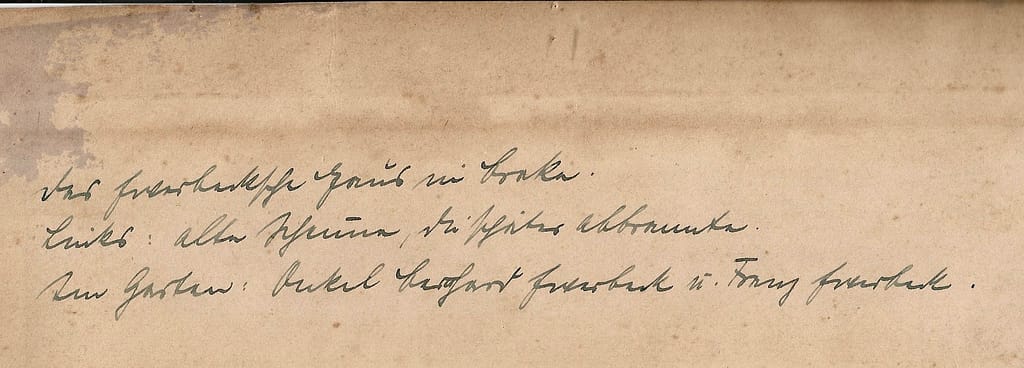 Das Överbecksche Haus in Brake.
Links: alte Scheune, die später abbrannte.
Im Garten: Onkel Gerhard Överbeck u. Franz Överbeck.